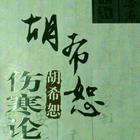 胡希恕
胡希恕
伤寒论